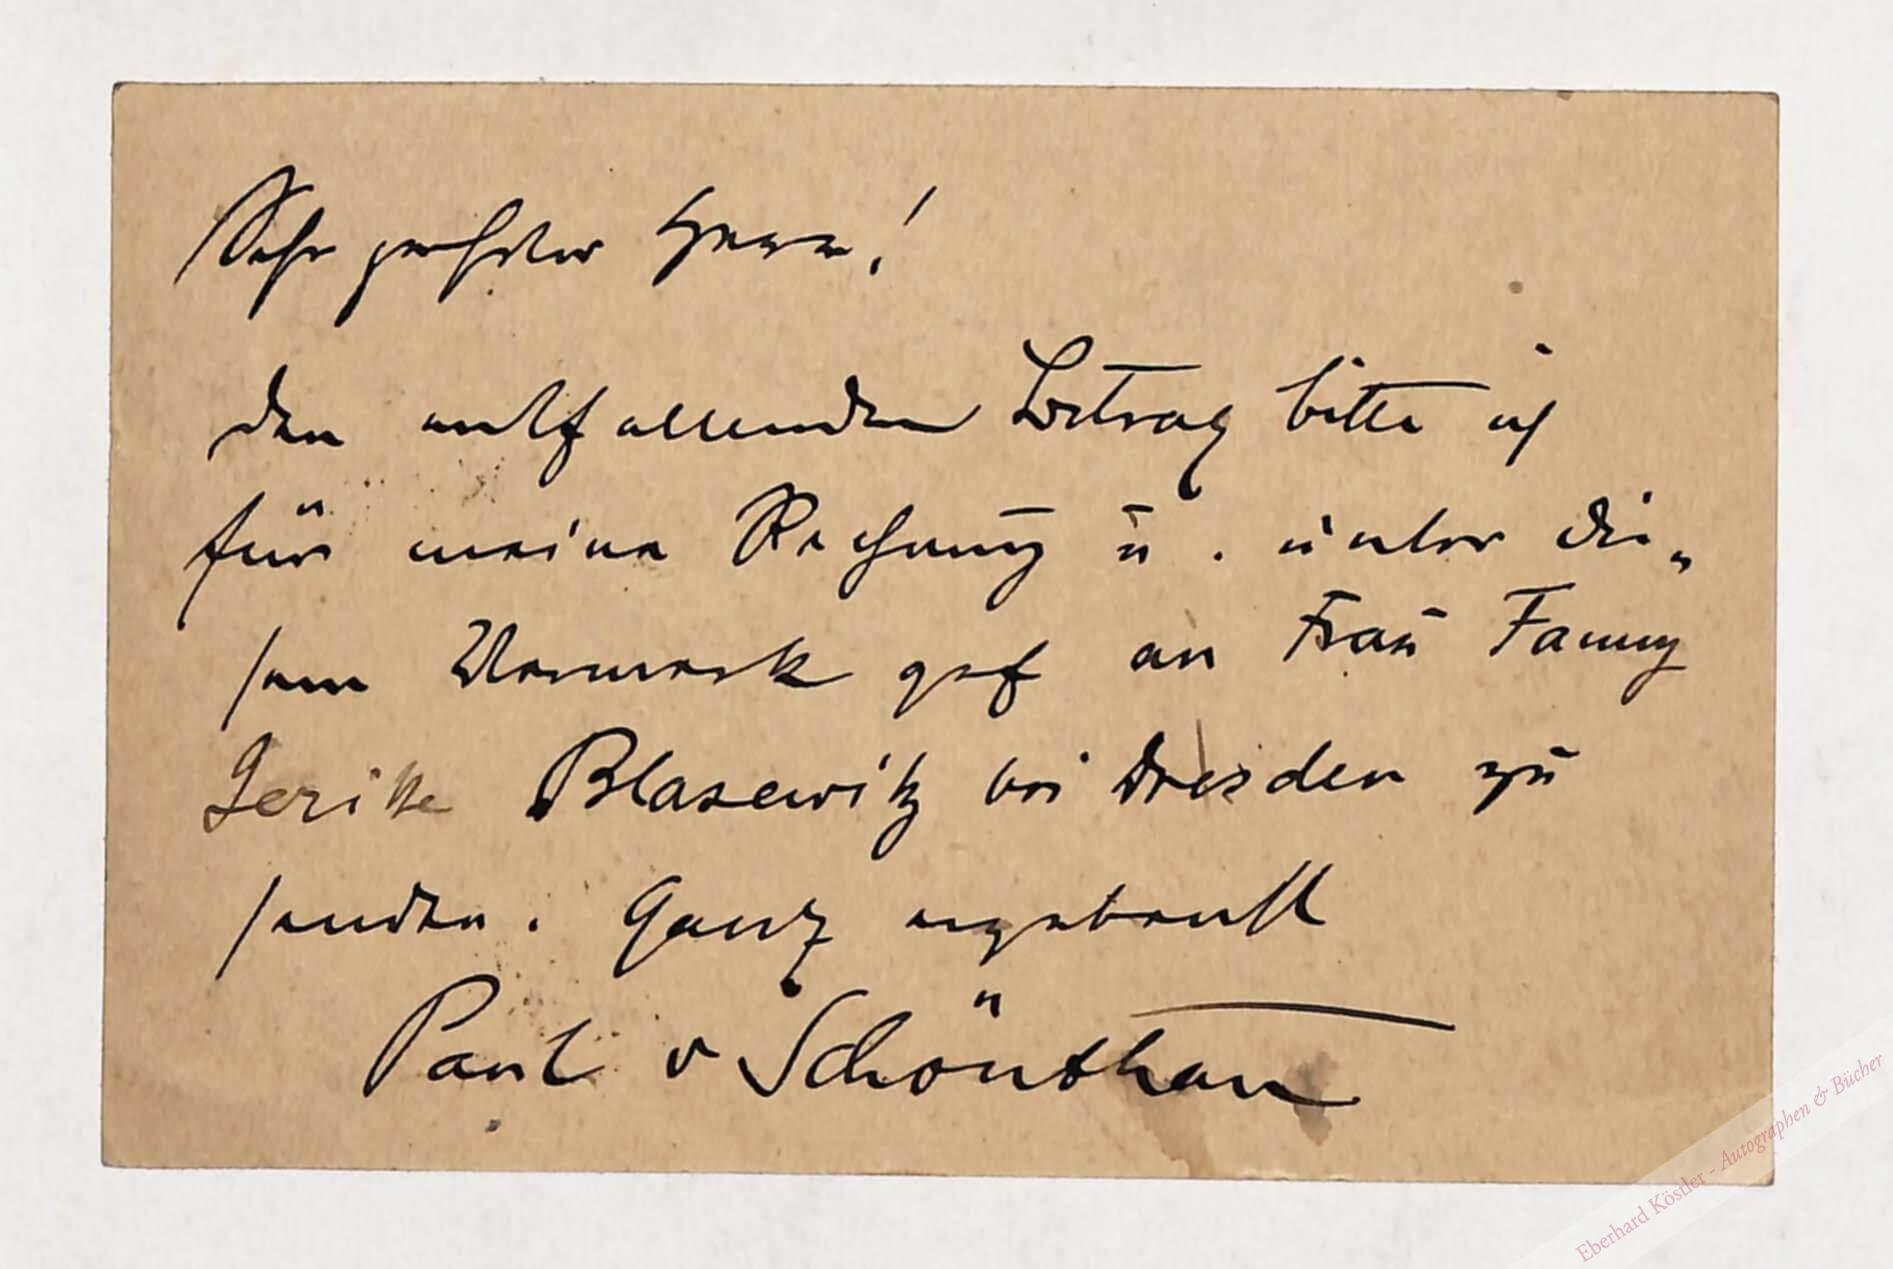 Sehr geehrter Herr!
den entfallenden Betrag bitte ich
für meine Rechnung u. unter die-
sem Vermerk gef an Frau Fanny
Gericke Blasewitz bei Dresden zu
senden. Ganz ergebenst
Paul v Schönthan
Eberhard Köstler - Autographen & Bücher